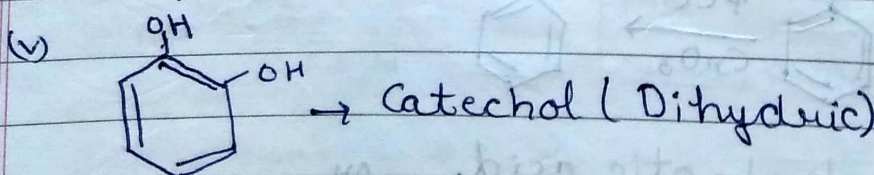 (v)
OH
OH
→ Catechol ( Dihydric)